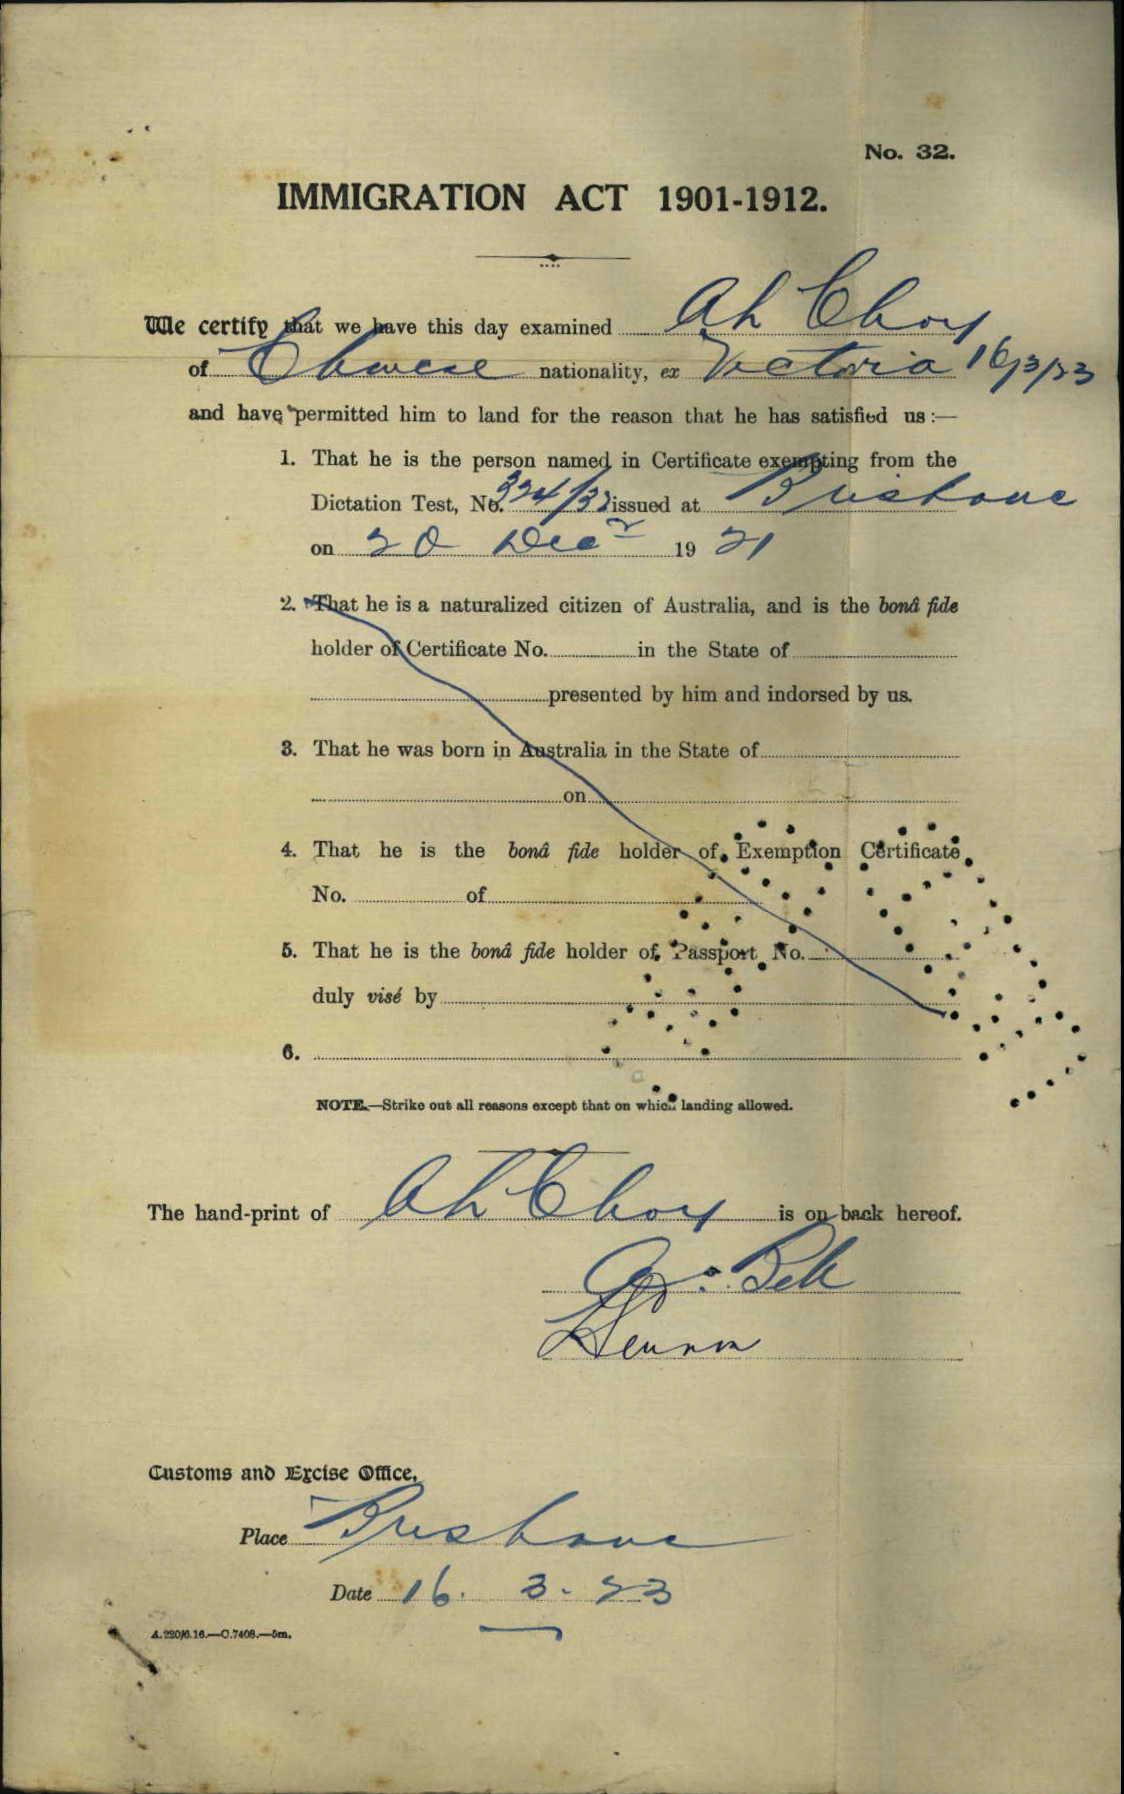 No. 32.
IMMIGRATION ACT 1901-1912.
We certify that we have this day examined Ah Choy
of Chinese nationality, ex Victoria 16/3/23
and have permitted him to land for the reason that he has satisfied us:—
1. That he is the person named in Certificate exempting from the
Dictation Test, No. 324/32 issued at Brisbane
on 20 Decr 1921
2. That he is a naturalized citizen of Australia, and is the bonâ fide
holder of Certificate No. in the State of
presented by him and indorsed by us.
3. That he was born in Australia in the State of
on
4. That he is the bonâ fide holder of Exemption Certificate
No. of
5. That he is the bonâ fide holder of Passport No.
duly visé by
6.
NOTE.—Strike out all reasons except that on which landing allowed.
The hand-print of Ah Choy is on back hereof.
Customs and Excise Office,
Place Brisbane
Date 16. 3. 23
A.220/6.16.—C.7408.—5m.